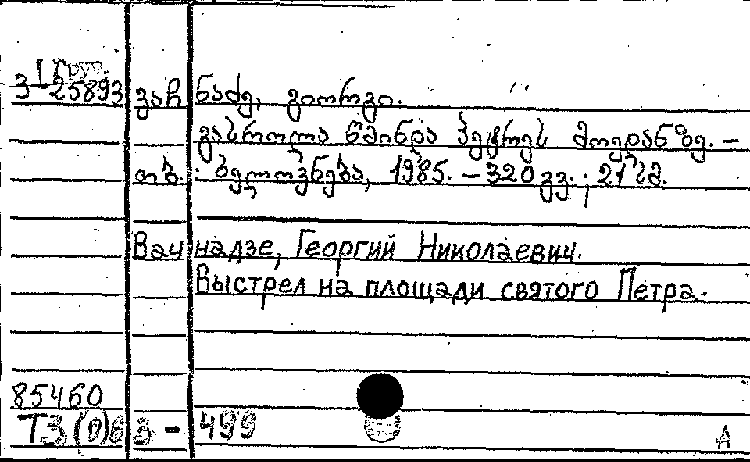 1 Груз.
3-25893 ვაჩნაძე, გიორგი.
გასროლა წმინდა პეტრეს მოედანზე. -
თბ.: ხელოვნება, 1985. - 320 გვ.; 21 სმ.
Вачнадзе, Георгий Николаевич.
Выстрел на площади святого Петра.
85460
ТЗ(0)63 - 499
А